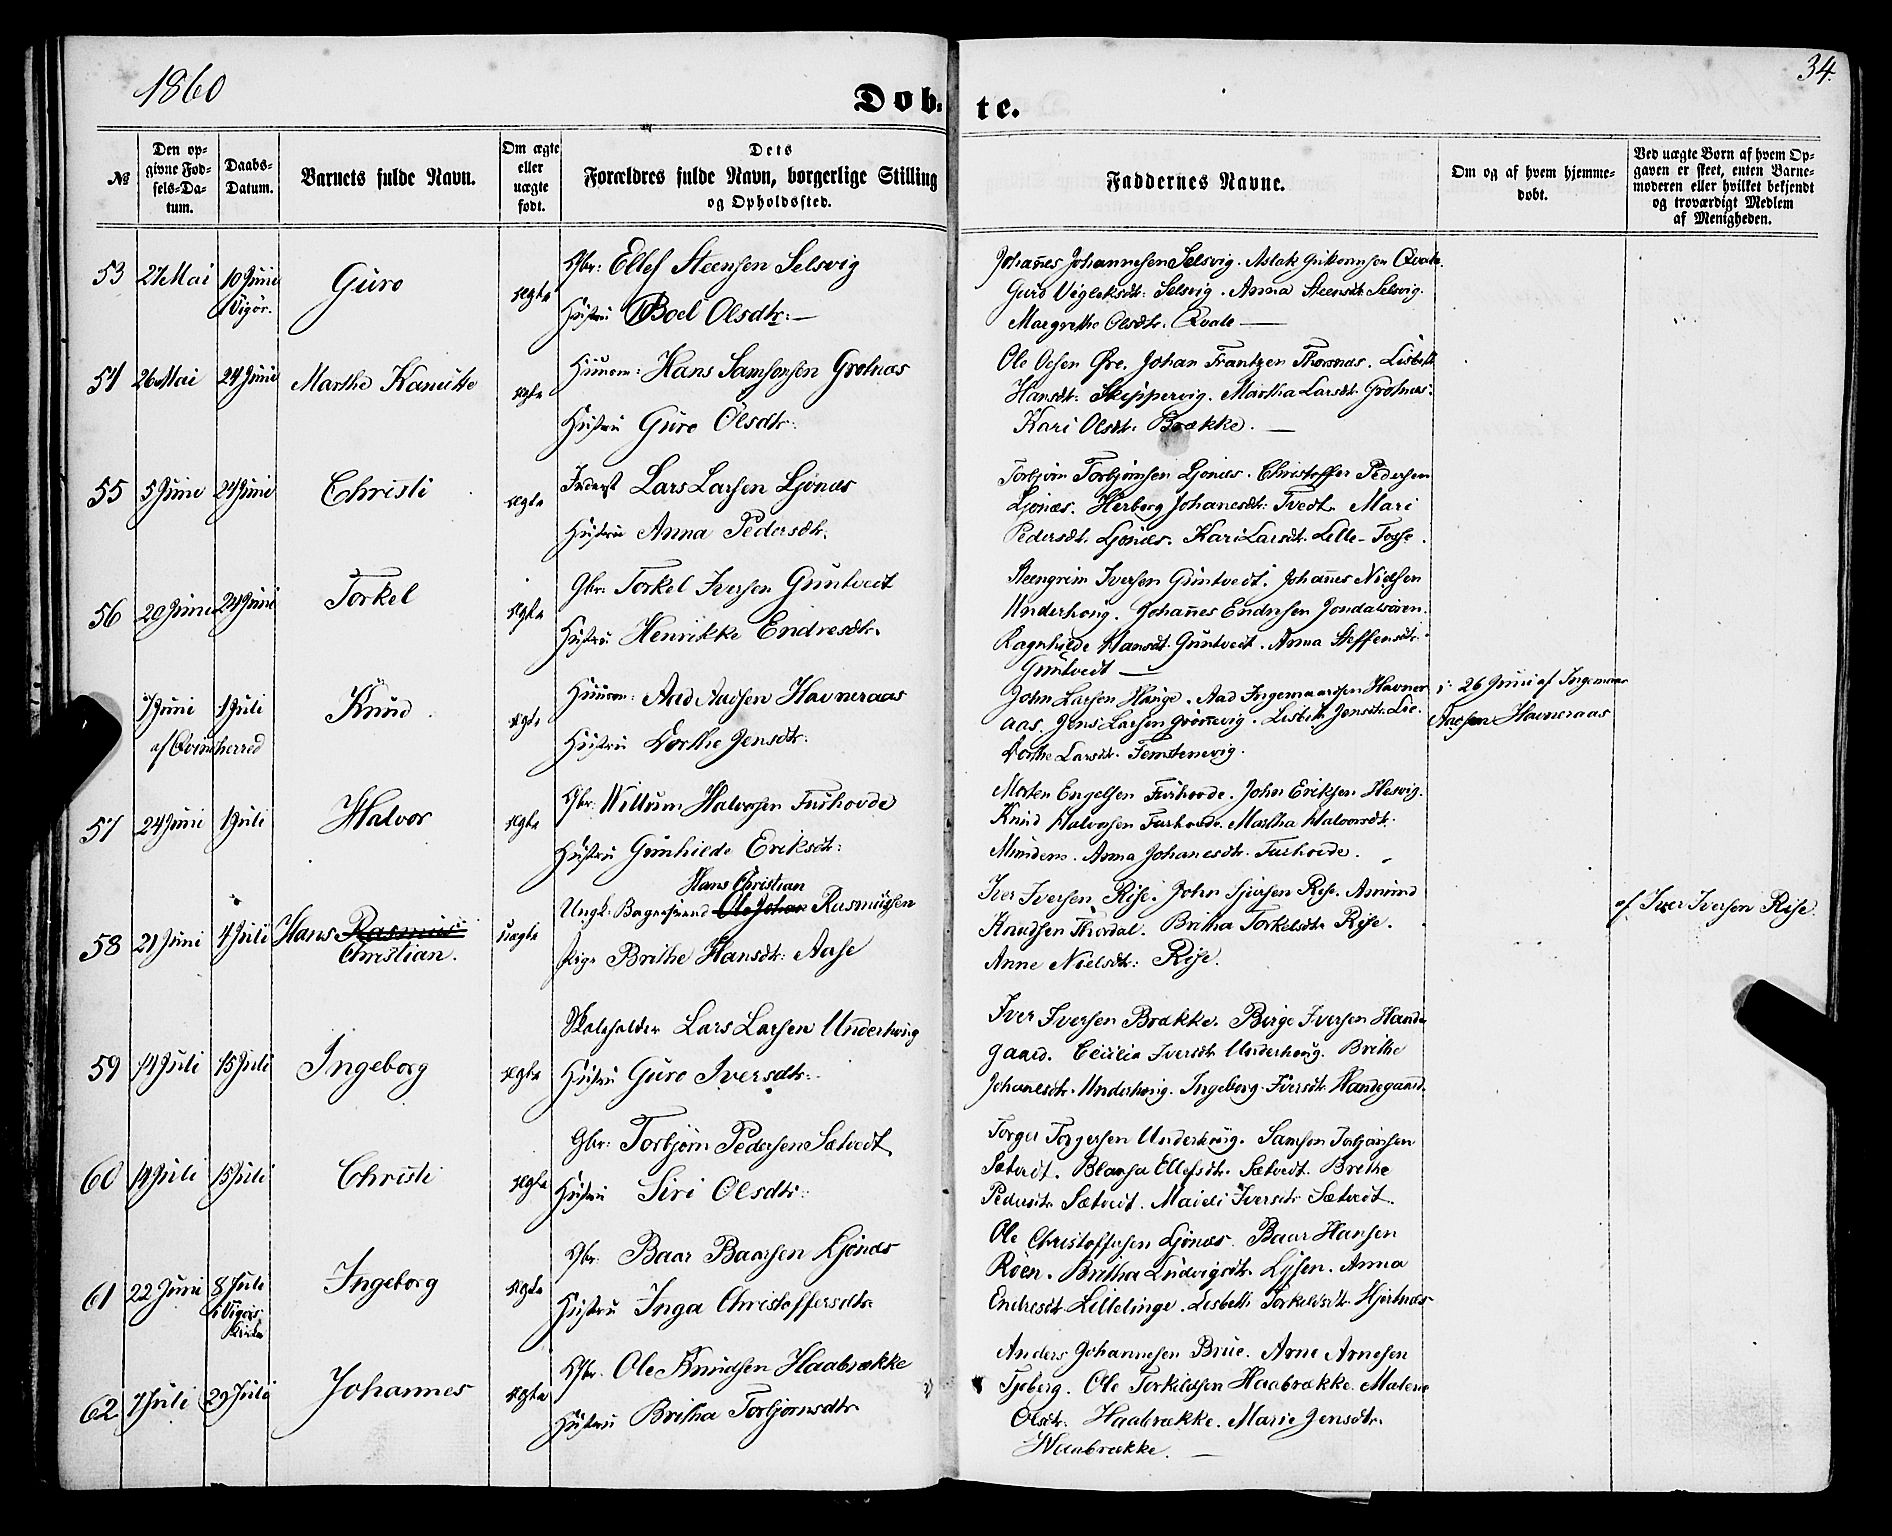 1860
34.
Døb-
te.
№
Den op-
givne Fød-
sels-Da-
tum.
Daabs-
Datum.
Barnets fulde Navn.
Om ægte
eller
uægte
født.
Dets
Forældres fulde Navn, borgerlige Stilling
og Opholdssted.
Faddernes Navne.
Om og af hvem hjemme-
døbt.
Ved uægte Børn af hvem Op-
gaven er skeet, enten Barne-
moderen eller hvilket bekjendt
og troværdigt Medlem
af Menigheden.
53 27 Mai 10 Juni Guro ægte Gbr: Ellef Steensen Selsvig
i Vigør. Hustru Boel Olsdtr:—
Johanes Johannesen Selsvig. Aslak Guttormsen Qvale.
Guro Vigleksdtr: Selsvig. Anna Steensdtr Selsvig.
Margrethe Olsdtr. Qvale —
54 26 Mai 24 Juni Marthe Kanutte ægte Huusm: Hans Samsonsen Grotnæs
Hustru Guro Olsdtr:
Ole Olsen Øre. Johan Frantzen Thorsnæs. Lisbeth
Hansdtr: Skippervig. Martha Larsdtr. Grotnæs.
Kari Olsdtr. Brække. —
55 5 Juni 24 Juni Christi ægte Inderst Lars Larsen Ljonæs
Hustru Anna Pedersdtr.
Torbjørn Torbjørnsen Ljonæs. Christoffer Pedersen
Ljonæs. Herborg Johanesdtr: Tvedt. Mari
Pedersdtr. Ljonæs. Kari Larsdtr. Lille-Fosse.
56 20 Juni 24 Juni Torkel ægte Gbr: Torkel Iversen Guntvedt
Hustru Henrikke Endresdtr.
Steengrim Iversen Guntvedt. Johanes Nielsen
Underhoug. Johannes Endresen Jondalsøren.
Ragnhilde Hansdtr. Guntvedt. Anna Steffensdtr.
Guntvedt —
7 Juni 1 Juli Knud ægte Huusm: Aad Aadsen Havneraas
af Qvindherred Hustru Dorthe Jensdtr:
John Larsen Hauge. Aad Ingemaarsen Havner
aas. Jens Larsen Grønevig. Lisbeth Jensdtr. Lie.
Dorthe Larsdtr. Femstenevig.
26 Juni af Ingemaar
Aadsen Havneraas
57 24 Juni 1 Juli Halvor ægte Gbr: Willum Halvorsen Furhovde
Hustru Gunhilde Eriksdtr:
Morten Engelsen Furhovde. John Eriksen Hesvig.
Knud Halvorsen Furhovde. Martha Halvorsdtr.
Mundem. Anna Johanesdtr. Furhovde.
58 21 Juni 4 Juli Hans Rasmus uægte Ungk: Bagersvend Ole Johan Rasmussen
Hans Christian
Christian. Pige Brithe Hansdtr: Aase
Iver Iversen Rise. John Sjursen Rise. Amund
Knudsen Thordal. Britha Torkelsdtr. Rise.
Anne Nielsdtr: Rise.
af Iver Iversen Rise.
59 14 Juli 15 Juli Ingeborg ægte Skoleholder Lars Larsen Underhoug
Hustru Guro Iversdtr:
Iver Iversen Brække. Birge Iversen Hande
gaard. Cecilia Iversdtr. Underhoug. Brithe
Johanesdtr. Underhoug. Ingeborg Iversdtr. Handegaard.
60 14 Juli 15 Juli Christi ægte Gbr: Torbjørn Pedersen Sætvedt
Hustru Siri Olsdtr:
Torger Torgersen Underhoug. Samson Torbjørnsen
Sætvedt. Blansa Ellefsdtr. Sætvedt. Brithe
Pedersdtr. Sætvedt. Maidi Iversdtr Sætvedt.
61 22 Juni 8 Juli Ingeborg ægte Gbr: Baar Baarsen Ljonæs
i Vigørs Hustru Inga Christoffersdtr.
Kirke
Ole Christoffersen Ljonæs. Baar Hansen
Røen. Britha Ludvigsdtr. Ljsen. Anna
Endresdtr. Lillelinge. Lisbeth Torkeldsdtr. Hjertnæs
62 7 Juli 29 Juli Johannes ægte Gbr. Ole Knudsen Haabrække
Hustru Britha Torbjørnsdtr.
Anders Johannesen Brue. Arne Arnesen
Tjoberg. Ole Torkildsen Haabrække. Malene
Olsdtr. Haabrække. Marie Jensdtr.
Haabrække. —